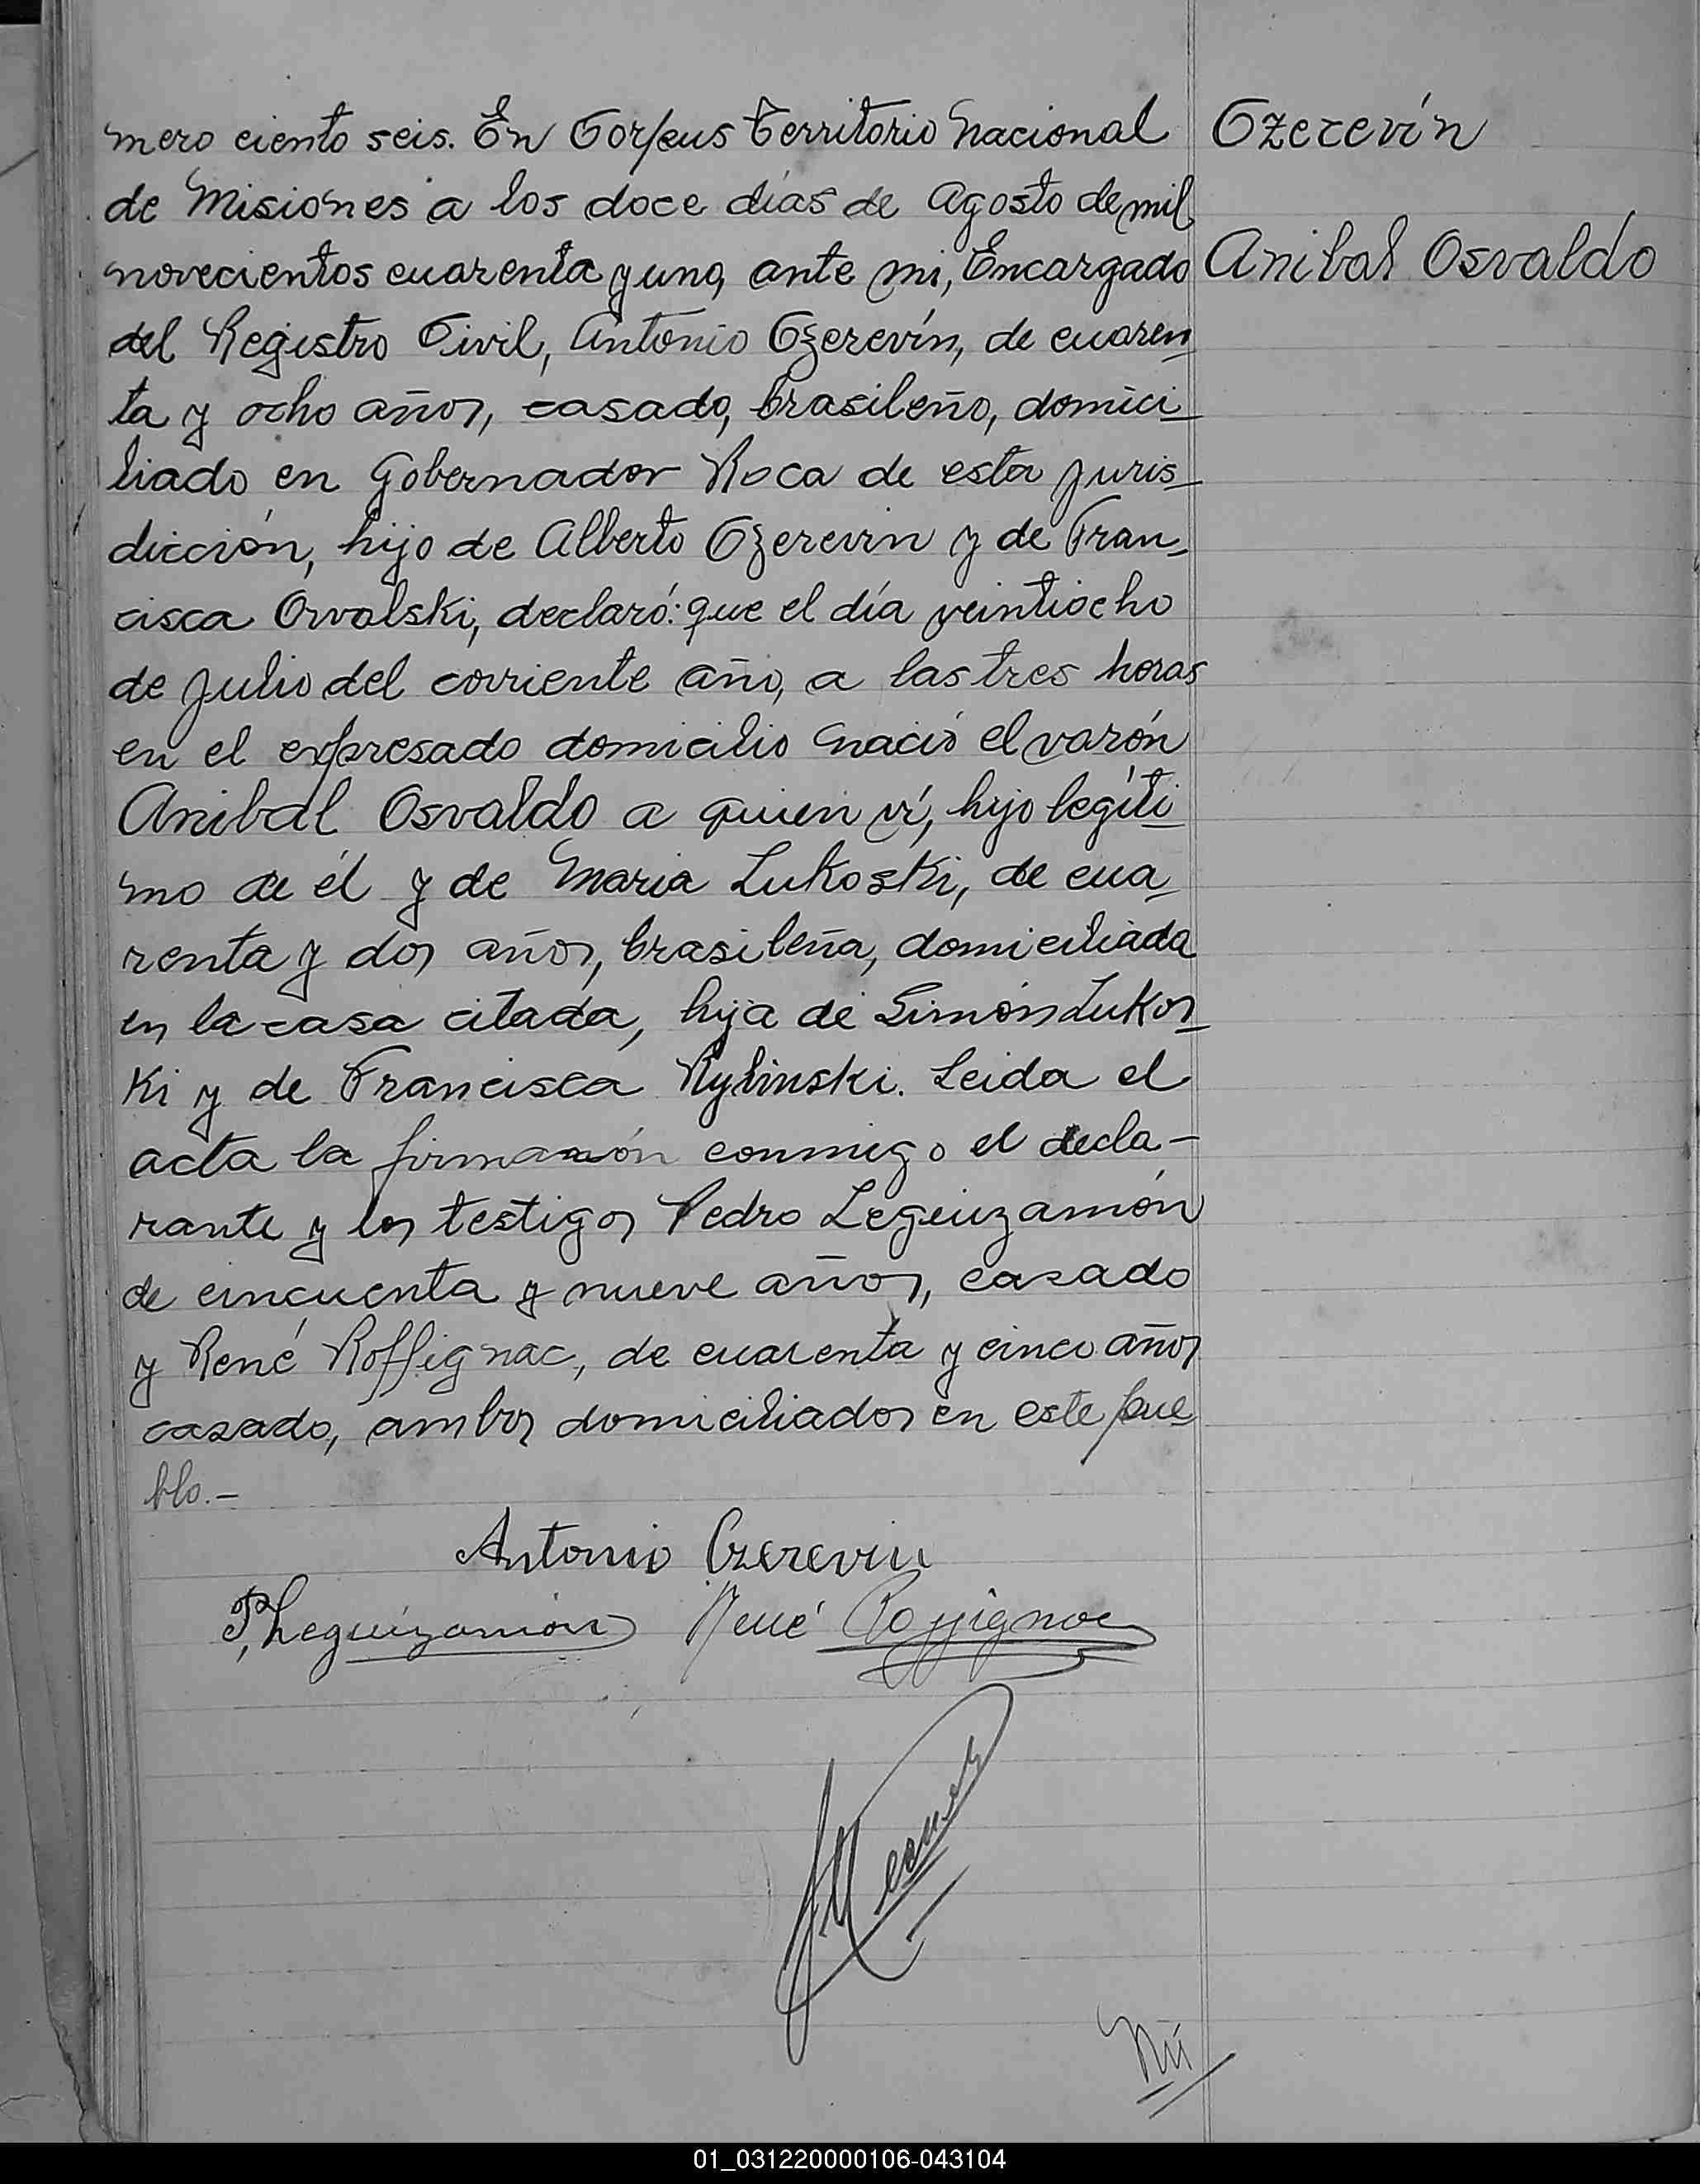 mero ciento seis. En Corpus Territorio Nacional
de Misiones a los doce días de Agosto de mil
novecientos cuarenta y uno, ante mi, Encargado
del Registro Civil, Antonio Czerevín, de cuaren
ta y ocho años, casado, brasileño, domici
liado en Gobernador Roca de esta juris
dicción, hijo de Alberto Czerevin y de Fran
cisca Orvalski, declaró: que el día veintiocho
de Julio del corriente año, a las tres horas
en el expresado domicilio nació el varón
Anibal Osvaldo a quien ví, hijo legíti
mo de él y de Maria Lukoski, de cua
renta y dos años, brasileña, domiciliada
en la casa citada, hija de Simón Lukos
ki y de Francisca Rylinski. Leida el
acta la firmaron conmigo el decla-
rante y los testigos Pedro Leguizamón
de cincuenta y nueve años, casado
y René Roffignac, de cuarenta y cinco años
casado, ambos domiciliados en este pue
blo.-
Antonio Czerevin
P. Leguizamón René Roffignac
Nú
Czerevín
Anibal Osvaldo
01_031220000106-043104